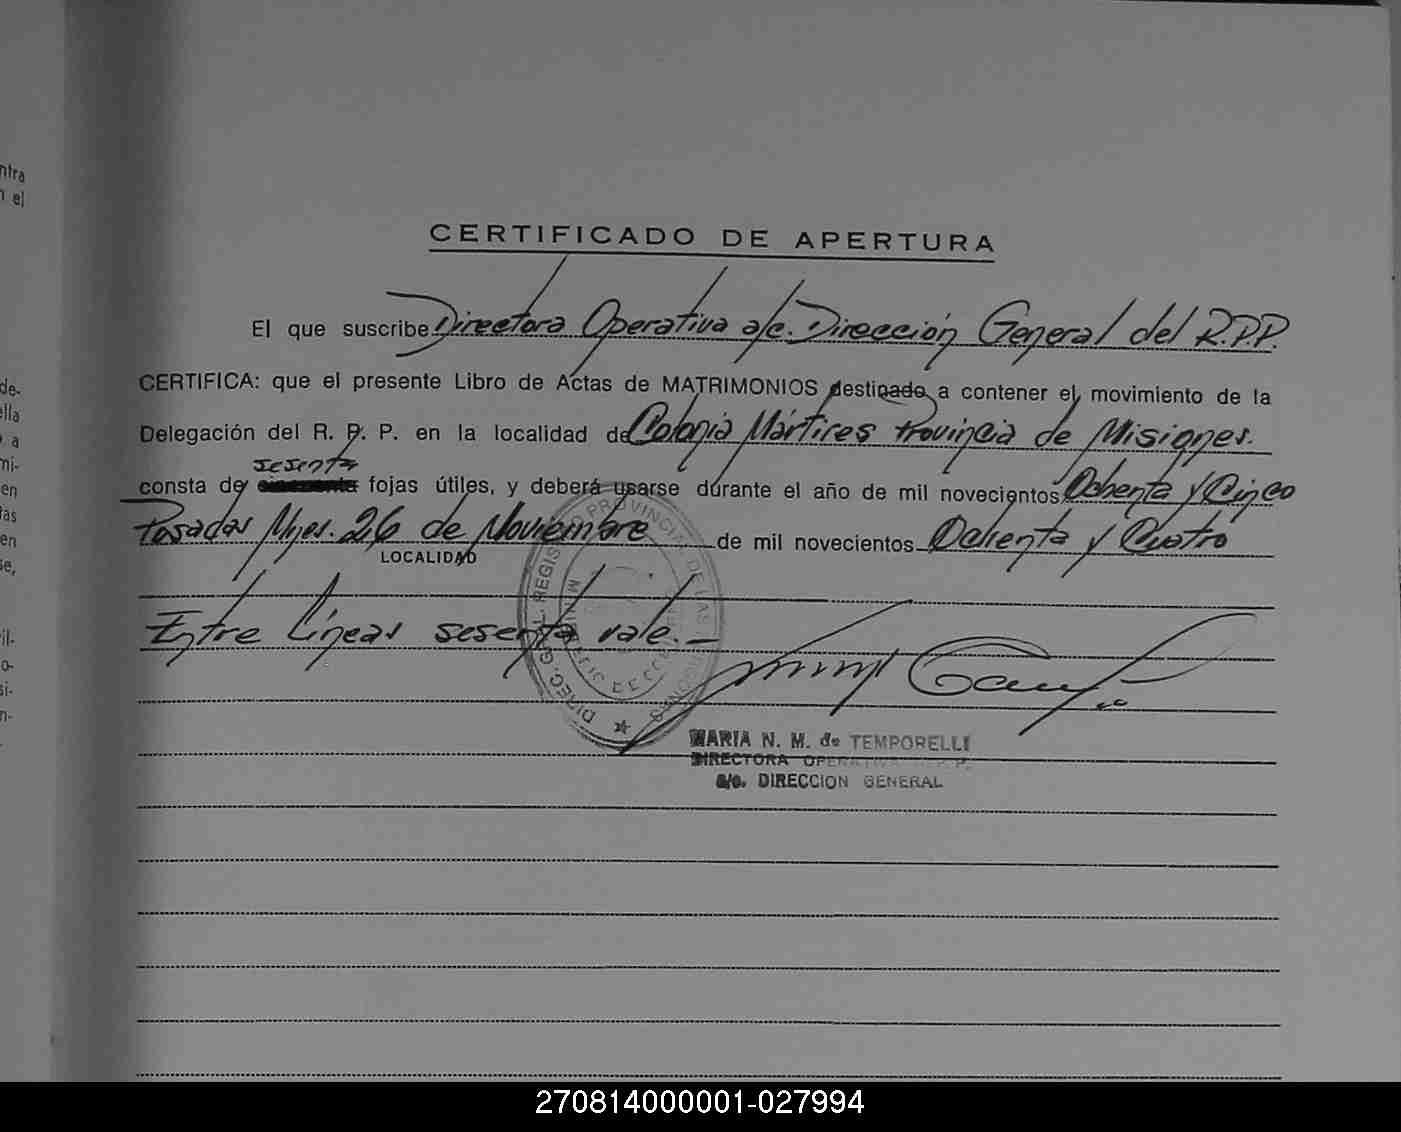 ntra
n el
de-
ella
a
mi-
en
tas
en
se,
il-
o-
si-
n-
CERTIFICADO DE APERTURA
El que suscribe Directora Operativa a/c. Dirección General del R.P.P.
CERTIFICA: que el presente Libro de Actas de MATRIMONIOS destinado a contener el movimiento de la
Delegación del R. P. P. en la localidad de Colonia Mártires Provincia de Misiones.
sesenta
consta de cincuenta fojas útiles, y deberá usarse durante el año de mil novecientos Ochenta y Cinco
Posadas Mnes. 26 de Noviembre de mil novecientos Ochenta y Cuatro
LOCALIDAD
Entre líneas sesenta vale.-
DIREC. GRAL. REGISTRO PROVINCIAL DE LAS PERSONAS
MARIA N. M. de TEMPORELLI
DIRECTORA OPERATIVA R.P.P.
a/c. DIRECCION GENERAL
270814000001-027994